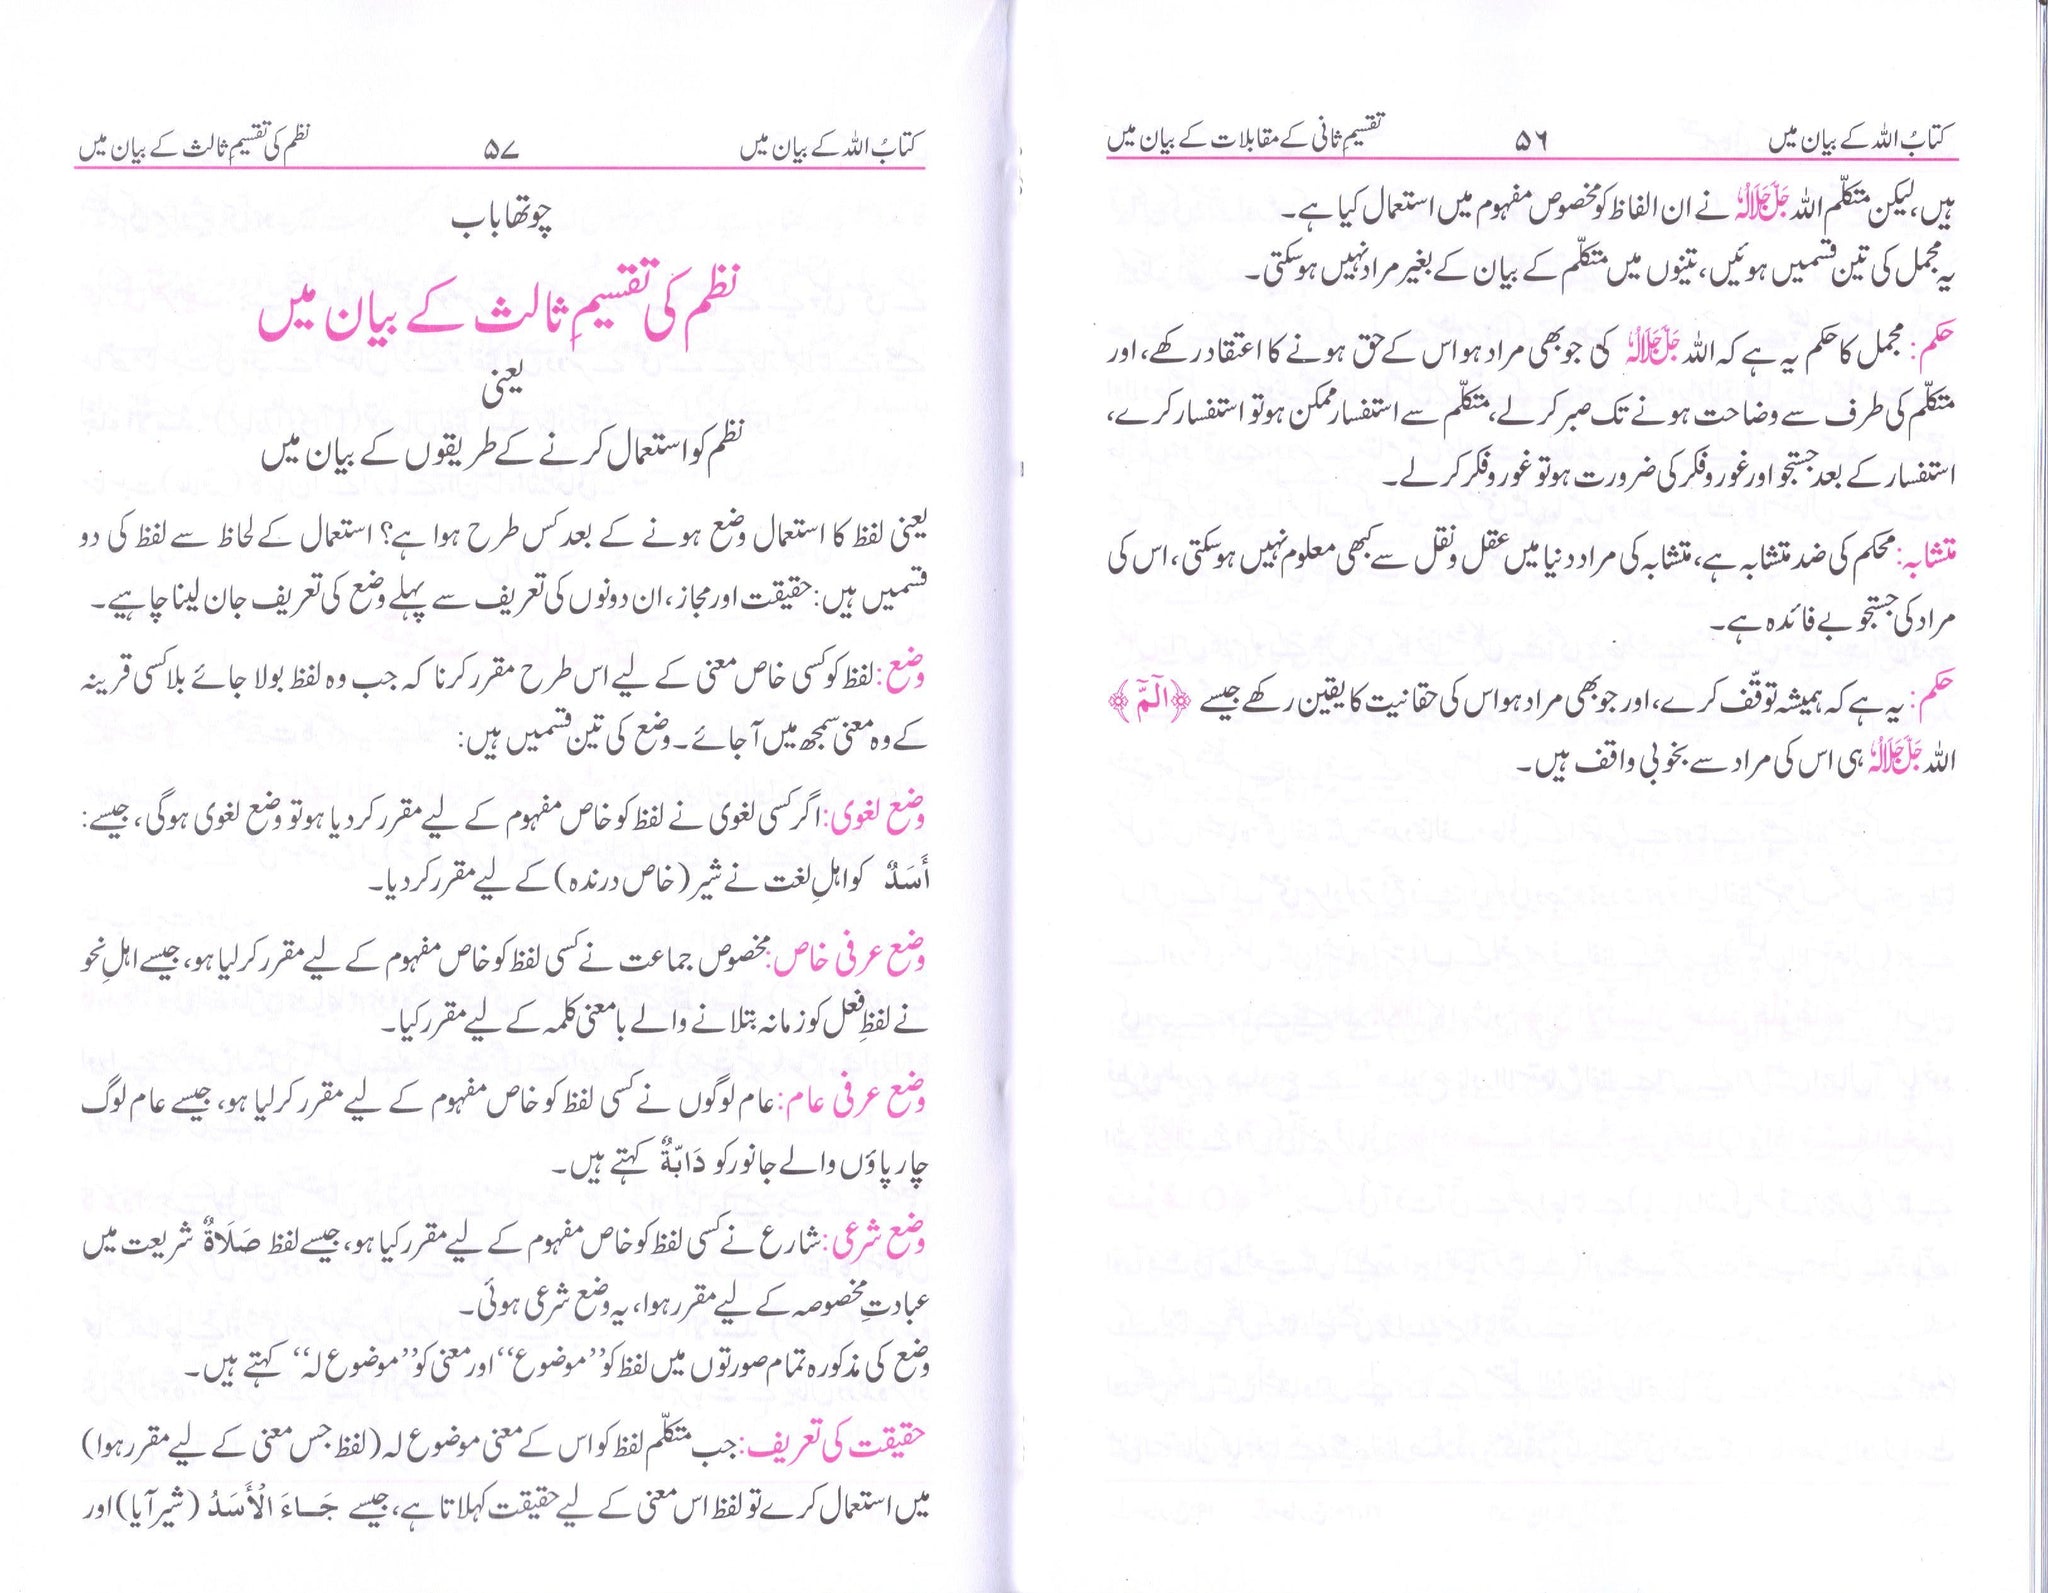 کتابُ اللہ کے بیان میں ۵۶ تقسیمِ ثانی کے مقابلات کے بیان میں
ہیں، لیکن متکلّم اللہ جَلَّ جَلَالُہٗ نے ان الفاظ کو مخصوص مفہوم میں استعمال کیا ہے۔
یہ مجمل کی تین قسمیں ہوئیں، تینوں میں متکلّم کے بیان کے بغیر مراد نہیں ہوسکتی۔
حکم: مجمل کا حکم یہ ہے کہ اللہ جَلَّ جَلَالُہٗ کی جو بھی مراد ہو اس کے حق ہونے کا اعتقاد رکھے، اور
متکلّم کی طرف سے وضاحت ہونے تک صبر کرلے، متکلّم سے استفسار ممکن ہو تو استفسار کرے،
استفسار کے بعد جستجو اور غور و فکر کی ضرورت ہو تو غور و فکر کرلے۔
متشابہ: محکم کی ضد متشابہ ہے، متشابہ کی مراد دنیا میں عقل و نقل سے کبھی معلوم نہیں ہوسکتی، اس کی
مراد کی جستجو بے فائدہ ہے۔
حکم: یہ ہے کہ ہمیشہ توقّف کرے، اور جو بھی مراد ہو اس کی حقانیت کا یقین رکھے جیسے ﴿الٓمّٓ﴾
اللہ جَلَّ جَلَالُہٗ ہی اس کی مراد سے بخوبی واقف ہیں۔
کتابُ اللہ کے بیان میں ۵۷ نظم کی تقسیمِ ثالث کے بیان میں
چوتھا باب
نظم کی تقسیمِ ثالث کے بیان میں
یعنی
نظم کو استعمال کرنے کے طریقوں کے بیان میں
یعنی لفظ کا استعمال وضع ہونے کے بعد کس طرح ہوا ہے؟ استعمال کے لحاظ سے لفظ کی دو
قسمیں ہیں: حقیقت اور مجاز، ان دونوں کی تعریف سے پہلے وضع کی تعریف جان لینا چاہیے۔
وضع: لفظ کو کسی خاص معنی کے لیے اس طرح مقرر کرنا کہ جب وہ لفظ بولا جائے بلا کسی قرینہ
کے وہ معنی سمجھ میں آجائے۔ وضع کی تین قسمیں ہیں:
وضع لغوی: اگر کسی لغوی نے لفظ کو خاص مفہوم کے لیے مقرر کردیا ہو تو وضع لغوی ہوگی، جیسے:
أَسَدٌ کو اہلِ لغت نے شیر (خاص درندہ) کے لیے مقرر کردیا۔
وضع عرفی خاص: مخصوص جماعت نے کسی لفظ کو خاص مفہوم کے لیے مقرر کرلیا ہو، جیسے اہلِ نحو
نے لفظِ فعل کو زمانہ بتلانے والے بامعنی کلمہ کے لیے مقرر کیا۔
وضع عرفی عام: عام لوگوں نے کسی لفظ کو خاص مفہوم کے لیے مقرر کرلیا ہو، جیسے عام لوگ
چار پاؤں والے جانور کو دَابَّةٌ کہتے ہیں۔
وضع شرعی: شارع نے کسی لفظ کو خاص مفہوم کے لیے مقرر کیا ہو، جیسے لفظ صَلَاةٌ شریعت میں
عبادتِ مخصوصہ کے لیے مقرر ہوا، یہ وضع شرعی ہوئی۔
وضع کی مذکورہ تمام صورتوں میں لفظ کو ’’موضوع‘‘ اور معنی کو ’’موضوع لہ‘‘ کہتے ہیں۔
حقیقت کی تعریف: جب متکلّم لفظ کو اس کے معنی موضوع لہ (لفظ جس معنی کے لیے مقرر ہوا)
میں استعمال کرے تو لفظ اس معنی کے لیے حقیقت کہلاتا ہے، جیسے جَاءَ الْأَسَدُ (شیر آیا) اور